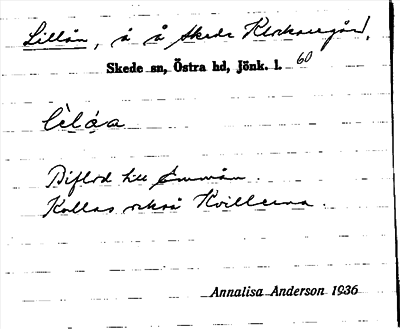 Lillån, å å Skede Klockaregård,
Skede sn, Östra hd, Jönk. l. 60
lìlå̀a
Biflod till Emmån.
Kallas också Kvillerna.
Annalisa Anderson 1936